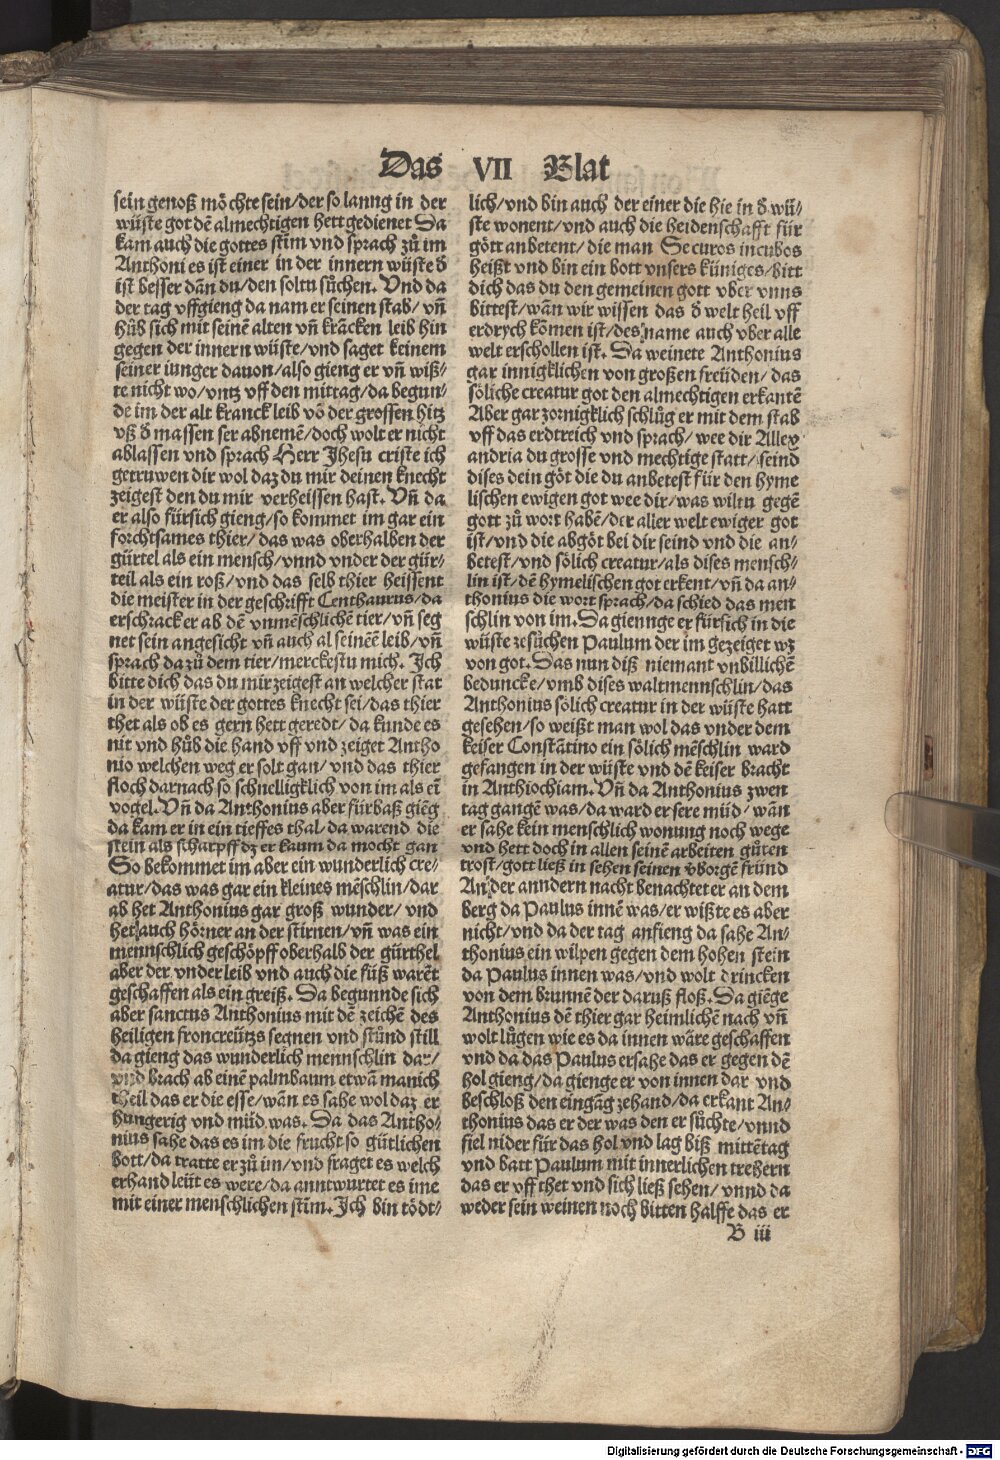 Das VII Blat
sein genoß möchte sein/der so lanng in der
wüste got dē almechtigen hett gedienet Da
kam auch die gottes stim vnd sprach zů im
Anthoni es ist einer in der innern wüste d̄
ist besser dan̄ du/den soltu sůchen. Vnd da
der tag vffgieng da nam er seinen stab/ vn̄
hůb sich mit seinē alten vn̄ krācken leib hin
gegen der innern wüste/vnd saget keinem
seiner iunger dauon/also gieng er vn̄ wiß/
te nicht wo/vntz vff den mittag/da begun/
de im der alt kranck leib vō der grossen hitz
vß d̄ massen ser abnemē/doch wolt er nicht
ablassen vnd sprach Herr Jhesu criste ich
getruwen dir wol daz du mir deinen knecht
zeigest den du mir verheissen hast. Vn̄ da
er also fürsich gieng/so kommet im gar ein
forchtsames thier/ das was oberhalben der
gürtel als ein mensch/vnnd vnder der gür/
teil als ein roß/vnd das selb thier heissent
die meister in der geschrifft Centhaurus/da
erschrack er ab dē vnmēschlichē tier/vn̄ seg
net sein angesicht vn̄ auch al seinēē leib/vn̄
sprach da zů dem tier/merckestu mich. Ich
bitte dich das du mir zeigest an welcher stat
in der wüste der gottes knecht sei/das thier
thet als ob es gern hett geredt/da kunde es
nit vnd hůb die hand vff vnd zeiget Antho
nio welchen weg er solt gan/vnd das thier
floch darnach so schnelligklich von im als eī
vogel. Vn̄ da Anthonius aber fürbaß giēg
da kam er in ein tieffes thal/da warend die
stein als scharpff dz er kaum da mocht gan
So bekommet im aber ein wunderlich cre/
atur/das was gar ein kleines mēschlin/dar
ab het Anthonius gar groß wunder/ vnd
het auch hörner an der stirnen/vn̄ was ein
mennschlich geschöpff oberhalb der gürthel
aber der vnder leib vnd auch die füß warēt
geschaffen als ein greiß. Da begunnde sich
aber sanctus Anthonius mit dē zeichē des
heiligen froncreützs segnen vnd stůnd still
da gieng das wunderlich mennschlin dar/
vnd brach ab einē palmbaum etwā manich
theil das er die esse/wan̄ es sahe wol daz er
hungerig vnd müd was. Da das Antho/
nius sahe das es im die frucht so gütlichen
bott/da tratte er zů im/vnd fraget es welch
erhand leüt es were/da anntwurtet es ime
mit einer menschlichen stim̄. Ich bin tödt/
lich/vnd bin auch der einer die hie in d̄ wü/
ste wonent/vnd auch die heidenschafft für
gött anbetent/die man Securos incubos
heißt vnd bin ein bott vnsers küniges/bitt
dich das du den gemeinen gott vber vnns
bittest/wan̄ wir wissen das d̄ welt heil vff
erdrych kōmen ist/des name auch vber alle
welt erschollen ist. Da weinete Anthonius
gar innigklichen von großen freüden/ das
söliche creatur got den almechtigen erkantē
Aber gar zornigklich schlůg er mit dem stab
vff das erdtreich vnd sprach/ wee dir Allex
andria du grosse vnd mechtige statt/seind
dises dein göt die du anbetest für den hyme
lischen ewigen got wee dir/was wiltu gegē
gott zů wort habē/der aller welt ewiger got
ist/vnd die abgöt bei dir seind vnd die an/
betest/vnd sölich creatur/als dises mensch/
lin ist/dē hymelischen got erkent/vn̄ da an/
thonius die wort sprach/da schied das men
schlin von im. Da giennge er fürsich in die
wüste zesůchen Paulum der im gezeiget wz
von got. Das nun diß niemant vnbillichē
beduncke/vmb dises waltmennschlin/das
Anthonius sölich creatur in der wüste hatt
gesehen/so weißt man wol das vnder dem
keiser Constātino ein sölich mēschlin ward
gefangen in der wüste vnd dē keiser bracht
in Anthiochiam. Vn̄ da Anthonius zwen
tag gangē was/da ward er sere müd/ wān
er sahe kein menschlich wonung noch wege
vnd hett doch in allen seinē arbeiten gůten
trost/gott ließ in sehen seinen vborgē fründ
An der anndern nacht benachtet er an dem
berg da Paulus innē was/er wißte es aber
nicht/vnd da der tag anfieng da sahe An/
thonius ein wilpen gegen dem hohen stein
da Paulus innen was/vnd wolt drincken
von dem brunnē der daruß floß. Da giēge
Anthonius dē thier gar heimlichē nach vn̄
wolt lůgen wie es da innen wäre geschaffen
vnd da das Paulus ersahe das er gegen dē
hol gieng/da gienge er von innen dar vnd
beschloß den eingāg zehand/da erkant An/
thonius das er der was den er sůchte/vnnd
fiel nider für das hol vnd lag biß mittētag
vnd batt Paulum mit innerlichen trehern
das er vff thet vnd sich ließ sehen/ vnnd da
weder sein weinen noch bitten halffe das er
B iii
Digitalisierung gefördert durch die Deutsche Forschungsgemeinschaft - DFG